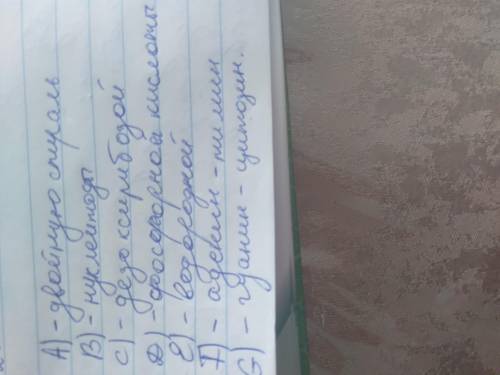 А) - двойную спираль
В) - нуклеотиды
С) - дезоксирибозой
D) - фосфорной кислоты
Е) - водородной
F) - аденин - тимин
G) - гуанин - цитозин.